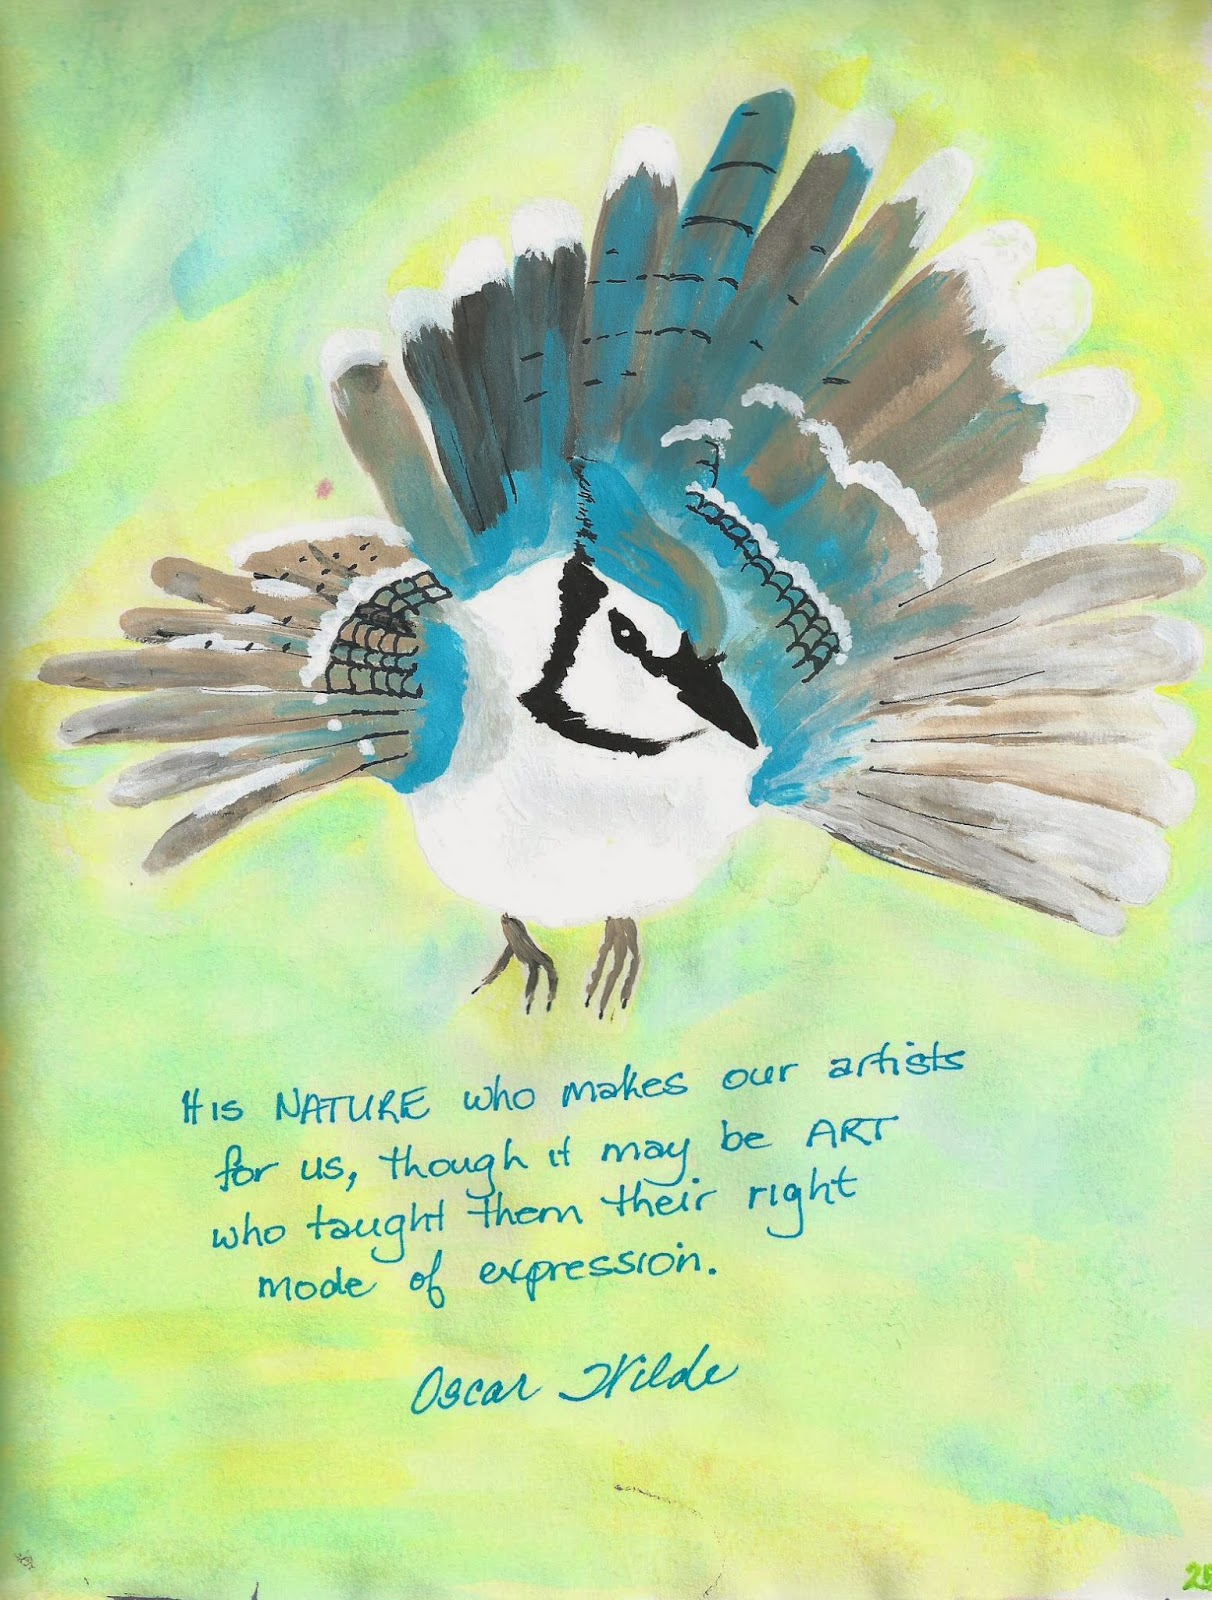 It is NATURE who makes our artists
for us, though it may be ART
who taught them their right
mode of expression.
Oscar Wilde